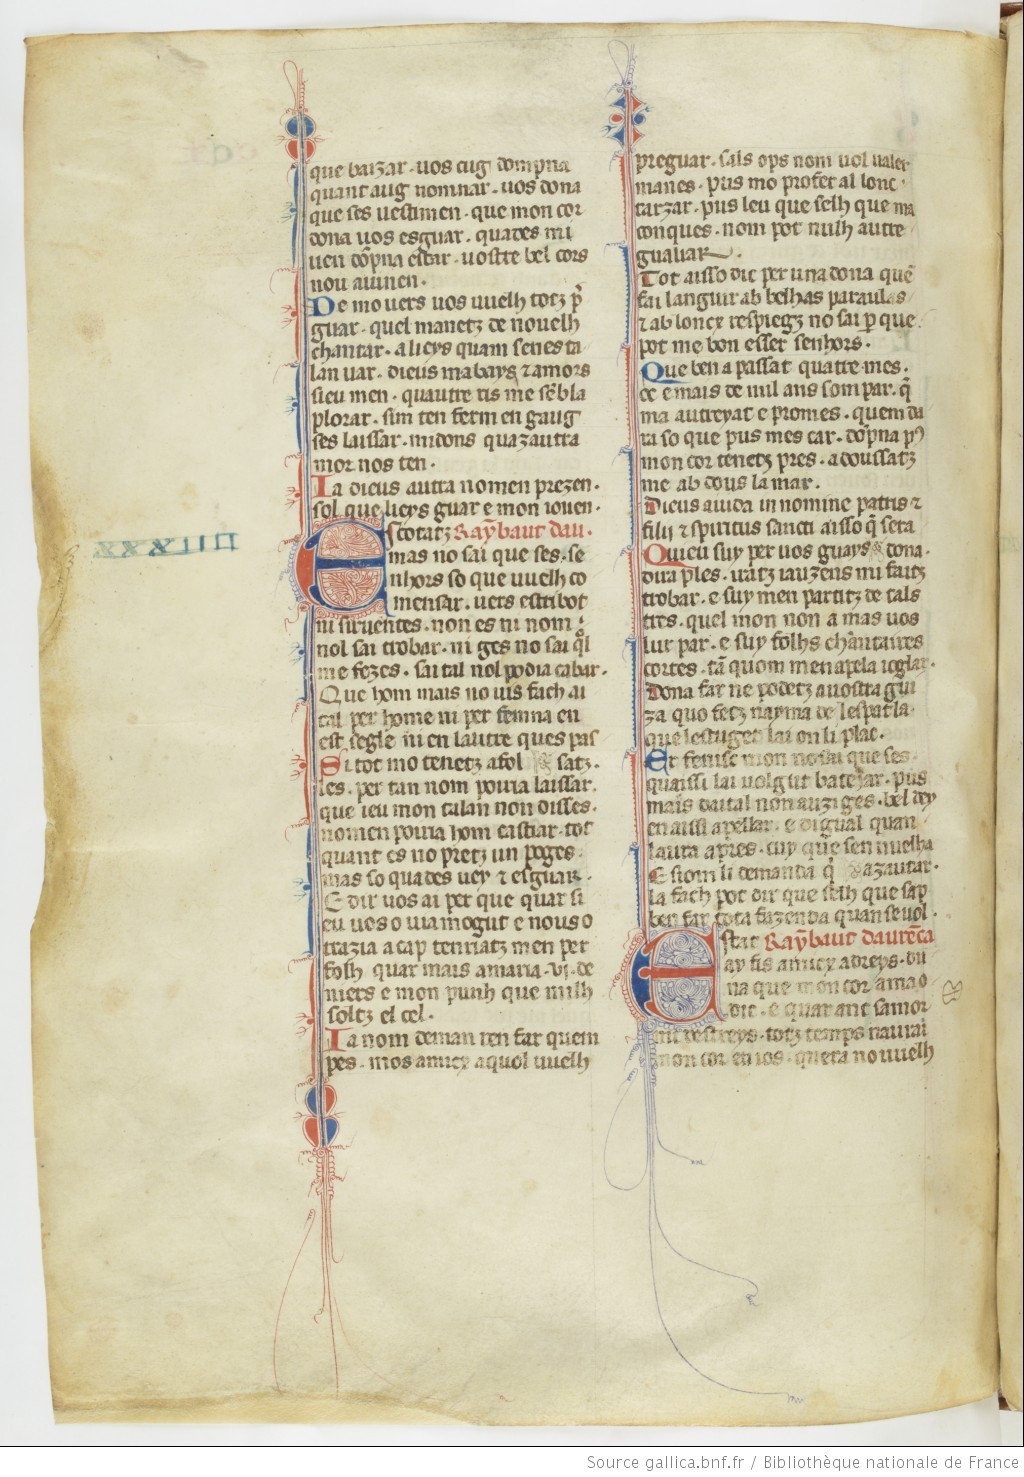 que baizar · uos cug dompna
quant aug nomnar · uos dona
que ses uestimen · que mon cor
dona uos esguar · quades mi
uen dõpna estar · uostre bel cors
nou auinen ·
De mo uers uos uuelh totz p̃
guar · quel manetz de nouelh
chantar · a lieys quam senes ta
lan uar · dieus mabays ⁊ amors
sieu men · quautre ris me sẽbla
plorar · sim ten ferm en gaug
ses laissar · midons quazautra
mor nos ten ·
Ia dieus autra nomen prezen ·
sol que lieys guar e mon iouen ·
Escotatz Raỹbaut dau ·
mas no sai que ses · se
nhors so que uuelh co
mensar · uers estribot
ni siruentes · non es ni nom
nol sai trobar · ni ges no sai q̃l
me fezes · sai tal nol podia cabar ·
Que hom mais no uis fach ai
tal per home ni per femna en
est segle ni en lautre ques pas
Sitot mo tenetz a fol satz ·
les · per tan nom poiria laissar ·
que ieu mon talan non disses ·
nomen poiria hom castiar · tot
quant es no pretz un poges ·
mas so quades uey ⁊ esguar ·
E dir uos ai per que quar si
eu uos o uia mogut e nous o
trazia a cap tenriatz men per
folh quar mais amaria · vi · de
niers e mon punh que milh
soltz el cel ·
Ia nom deman ren far quem
pes · mos amicx aquol uuelh
preguar · sals ops nom uol ualer
manes · pus mo profer al lonc ·
tarzar · pus leu que selh que ma
conques · nom pot nulh autre
gualiar
Tot aisso dic per una dona quẽ
fai languir ab belhas paraulas
⁊ ab loncx respiegz no sai p que
pot me bon esser senhors ·
Que ben a passat quatre mes ·
oc e mais de mil ans som par · q̃
ma autreyat e promes · quem da
ra so que pus mes car · dõpna pᵒ
mon cor tenetz pres · adoussatz
me ab dous la mar ·
Dieus aiuda in nomine patris ⁊
filij ⁊ spiritus sancti aisso q̃ sera
Quieu suy per uos guays dona ·
dira ples · iratz iauzens mi faitz
trobar · e suy men partitz de tals
tres · quel mon non a mas uos
lur par · e suy folhs chantaires
cortes · tã quom men apela ioglar ·
Dona far ne podetz a uostra gui
za quo fetz nayma de lespatla ·
que lestuget lai on li plac ·
Er fenisc mon no sai que ses ·
quaissi lai uolgut bateiar · pus
mais daital non auzi ges · bel dey
enaissi apellar · e digual quan
laura apres · cuy que sen uuelha
E siom li demanda q̃ azautar ·
la fach pot dir que selh que sap
ben far tota fazenda quan se uol ·
Estat Raỹbaut daurẽca
ay fis amicx adreys · du
na que mon cor ama o
dic · e quar anc samor
totz temps naurai
mon cor en ios · quera no uuelh
Source gallica.bnf.fr / Bibliothèque nationale de France